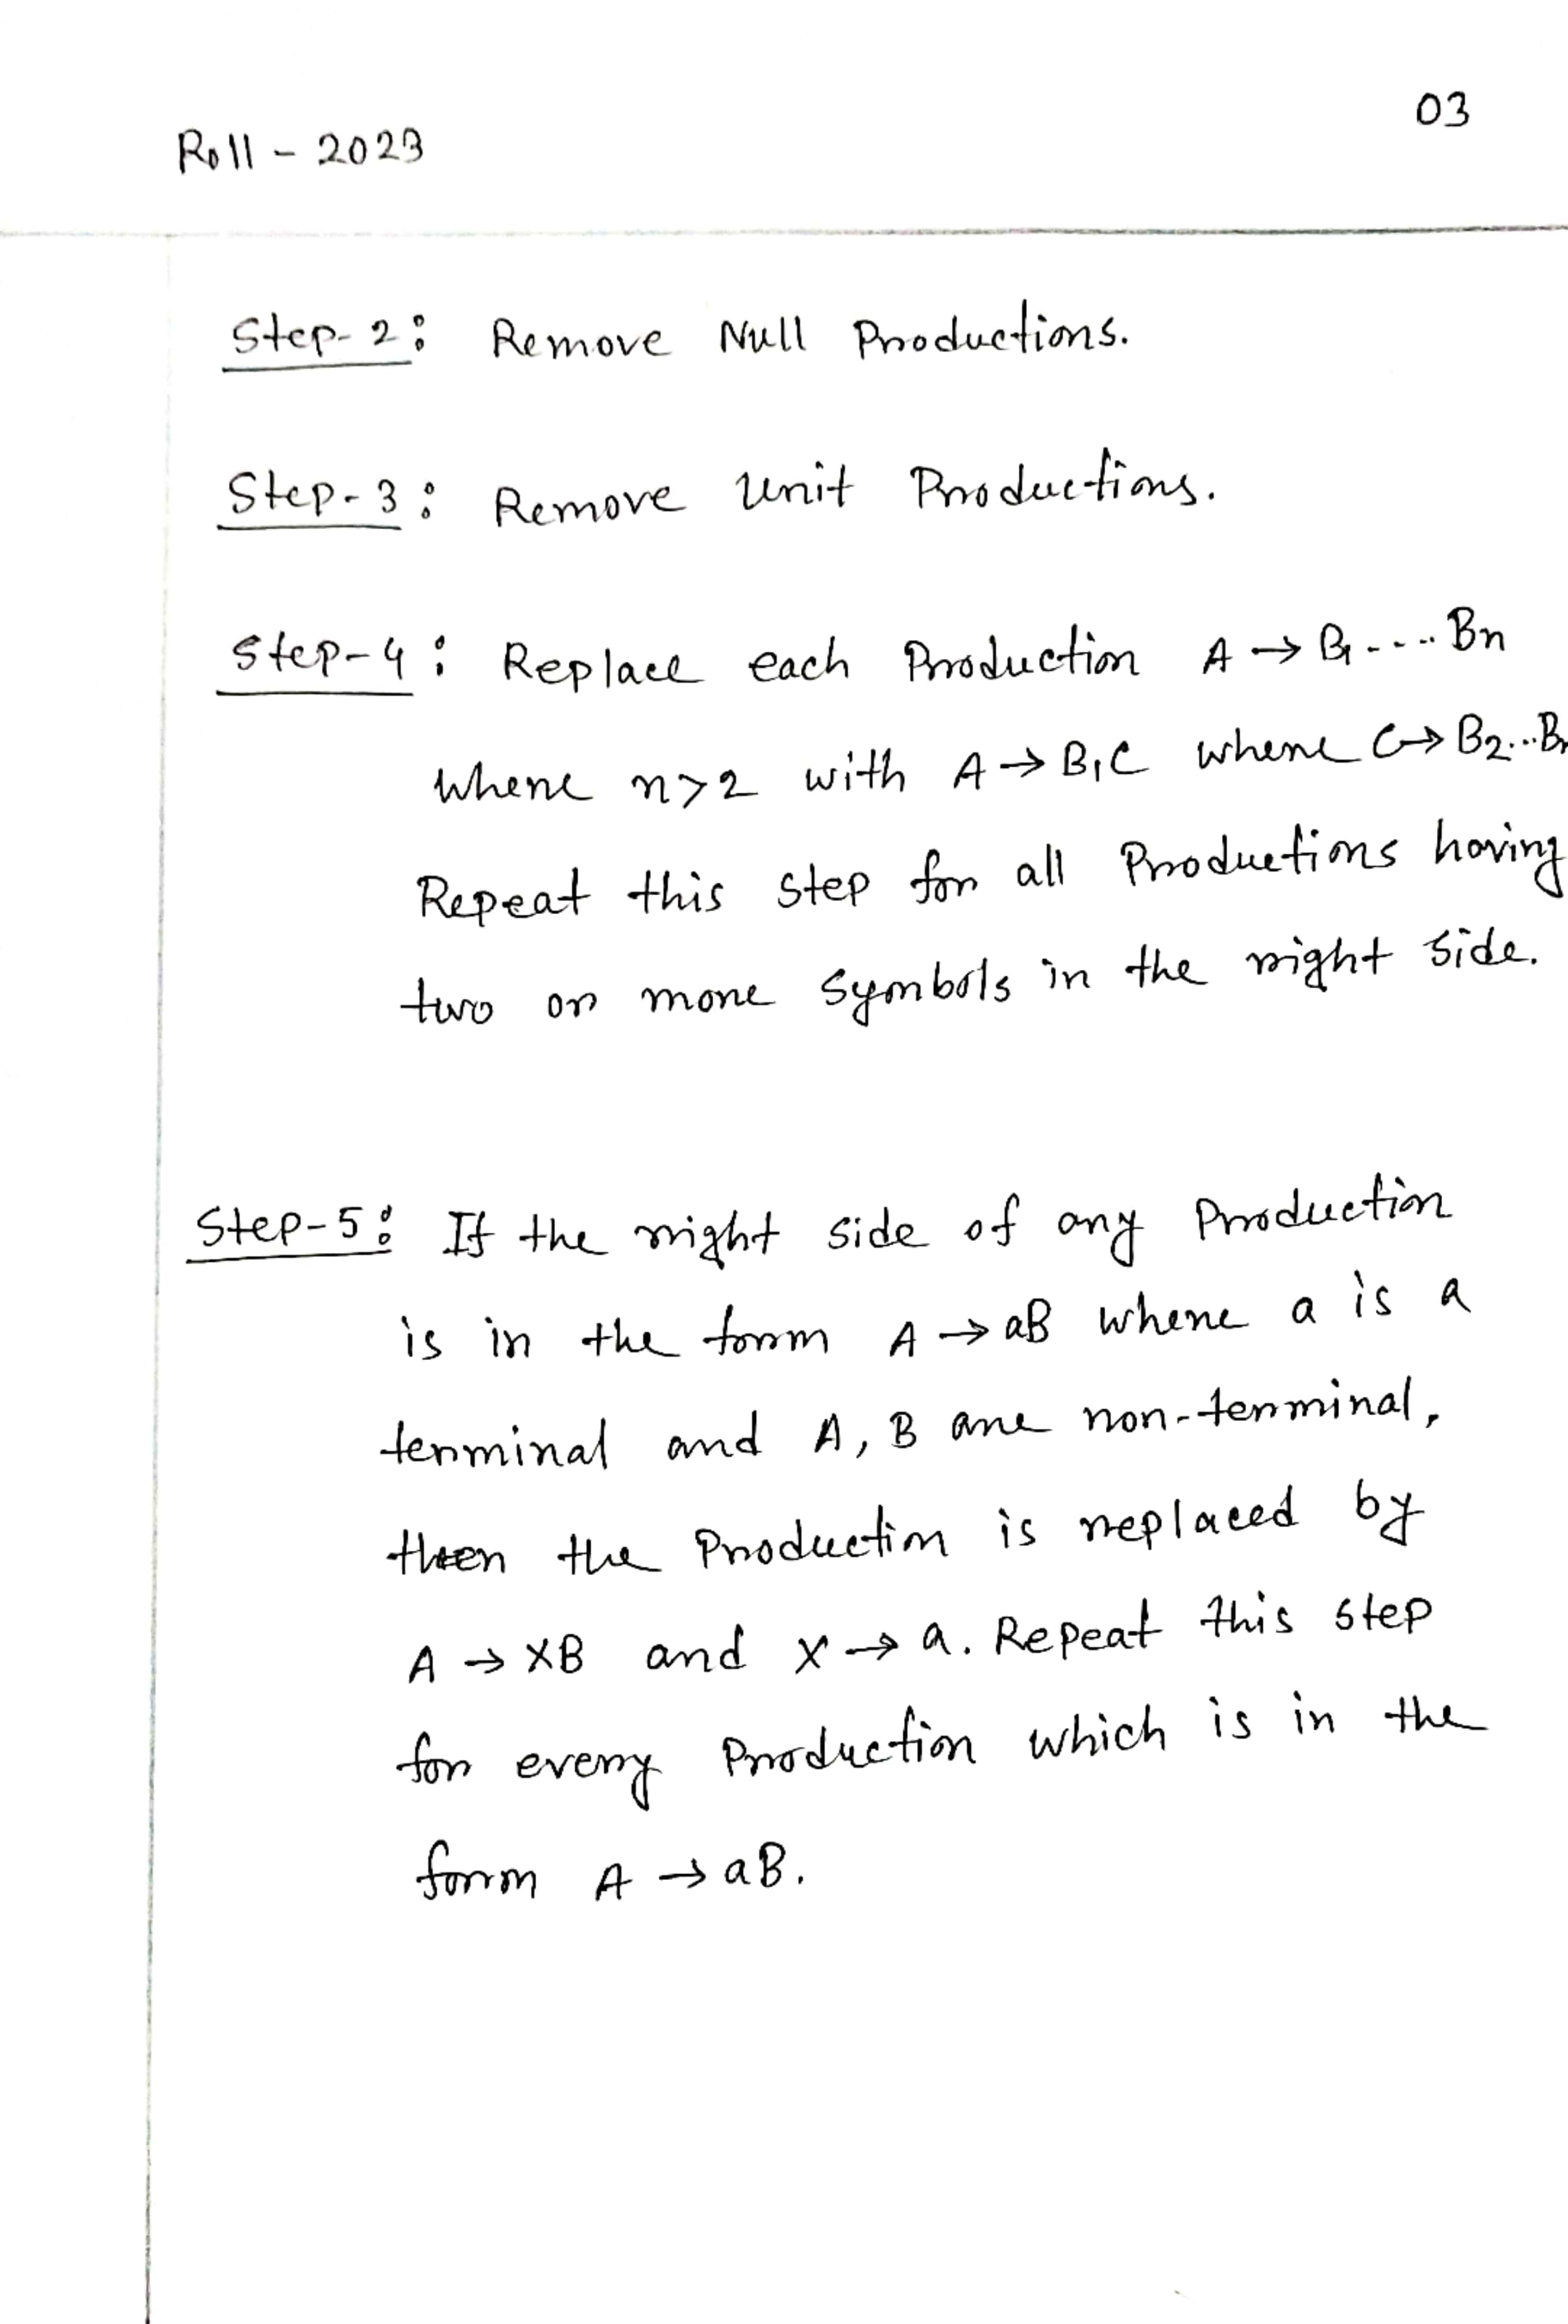 03
Roll - 2023
Step-2: Remove Null Productions.
Step-3: Remove Unit Productions.
Step-4: Replace each Production A → B1.... Bn
where n>2 with A → B1C where C → B2...Bn
Repeat this step for all Productions having
two or more symbols in the right side.
Step-5: If the right side of any Production
is in the form A → aB where a is a
terminal and A, B are non-terminal,
then the Production is replaced by
A → XB and X → a. Repeat this step
for every Production which is in the
form A → aB.